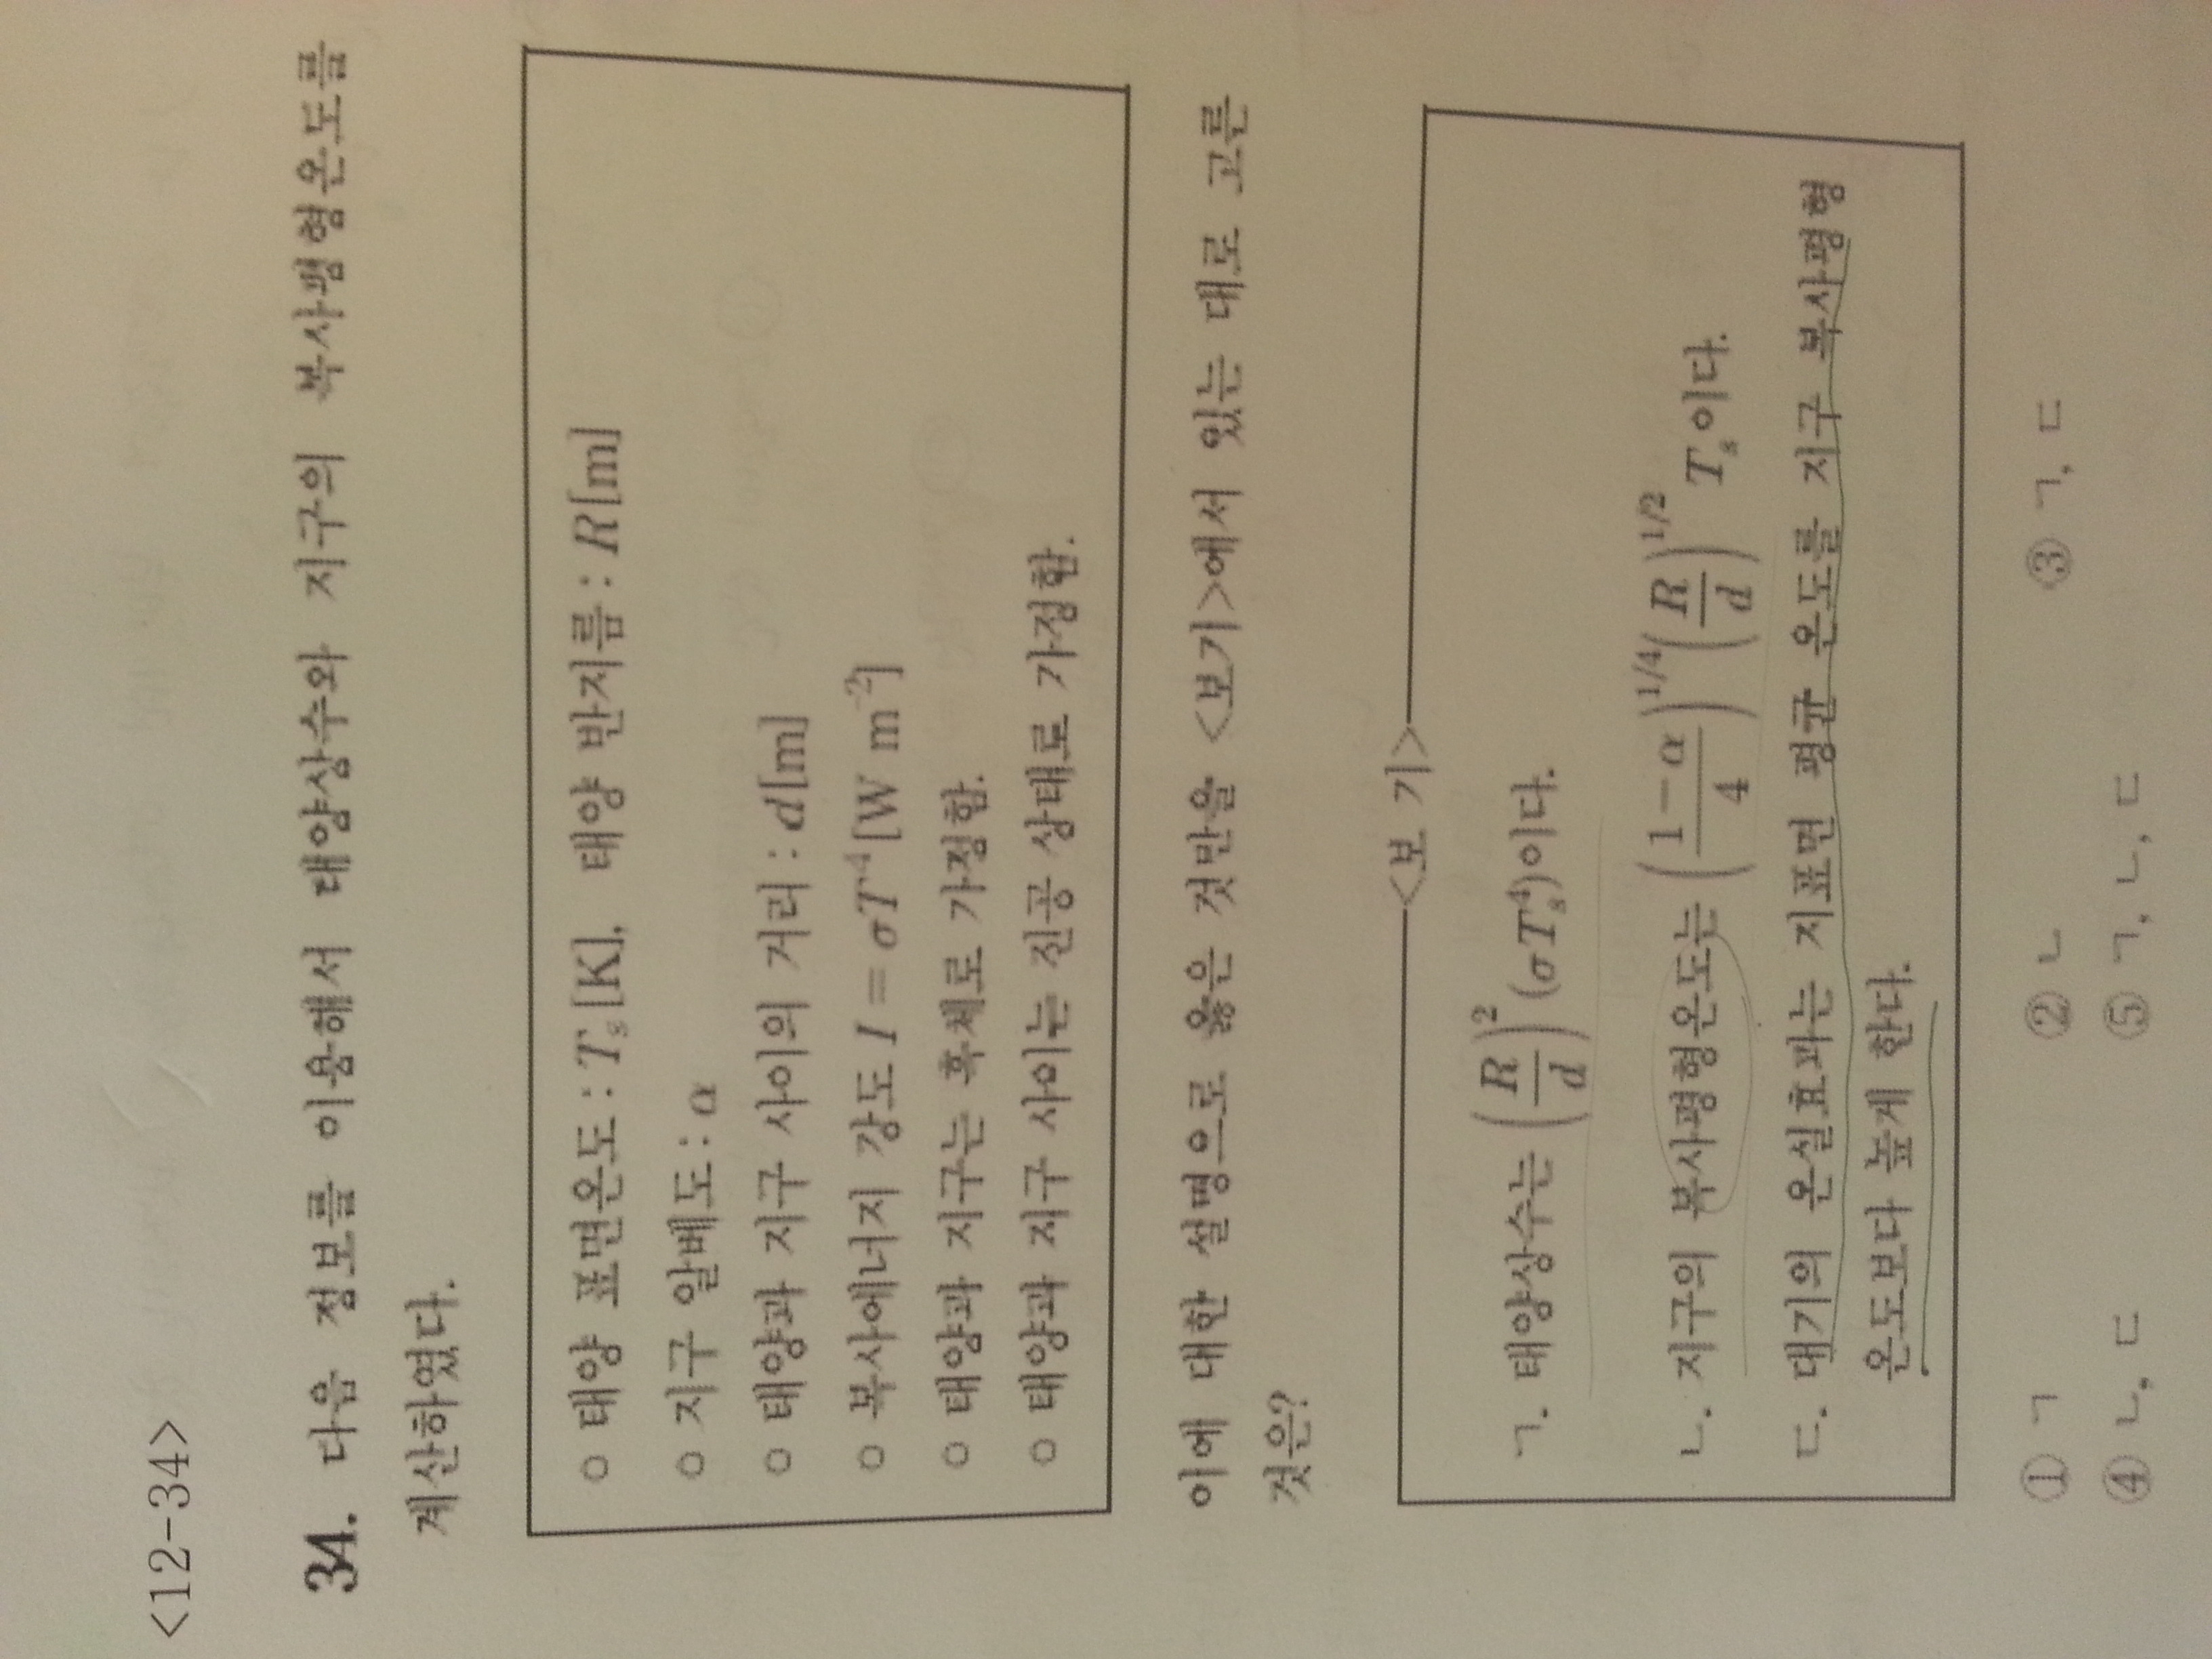 <12-34>
34. 다음 정보를 이용해서 태양상수와 지구의 복사평형온도를
계산하였다.
○ 태양 표면온도 : Tₛ[K], 태양 반지름 : R[m]
○ 지구 알베도 : α
○ 태양과 지구 사이의 거리 : d[m]
○ 복사에너지 강도 I = σT⁴[W m⁻²]
○ 태양과 지구는 흑체로 가정함.
○ 태양과 지구 사이는 진공 상태로 가정함.
이에 대한 설명으로 옳은 것만을 <보기>에서 있는 대로 고른
것은?
<보 기>
ㄱ. 태양상수는 (R/d)²(σTₛ⁴)이다.
ㄴ. 지구의 복사평형온도는 ((1-α)/4)^{1/4}(R/d)^{1/2} Tₛ이다.
ㄷ. 대기의 온실효과는 지표면 평균 온도를 지구 복사평형
온도보다 높게 한다.
① ㄱ ② ㄴ ③ ㄱ, ㄷ
④ ㄴ, ㄷ ⑤ ㄱ, ㄴ, ㄷ